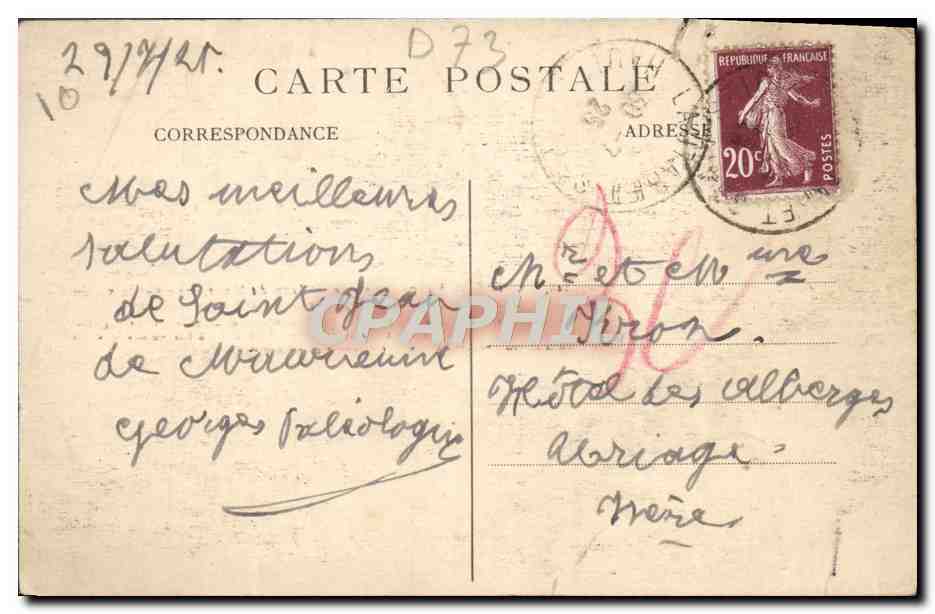 29/7/25.
10
D73
CARTE POSTALE
CORRESPONDANCE
ADRESSE
REPUBLIQUE FRANÇAISE
20c
POSTES
Mes meilleures
salutations
de Saint Jean
de Maurienne
Georges Paléologue
M. et Mme
Hôtel des Alberges
Uriage.
Isère
CPAPHIL